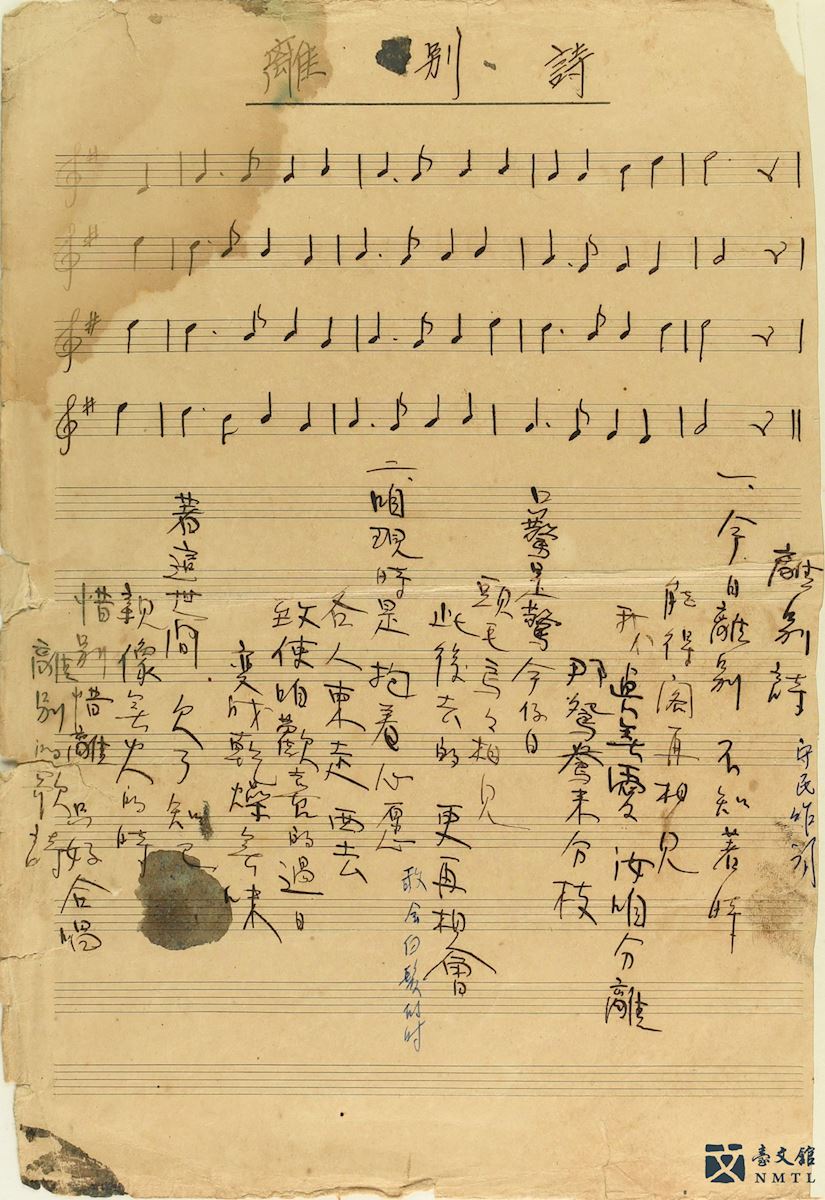 離別詩
離別詩 守民作詞
一、今日離別 不知著時
能得閣再相見
我不過無愛 汝咱分離
那鴛鴦未分枝
只驚是驚 今仔日
頭毛烏烏相見
此後去的 更再相會
敢会白髮的时
二、咱現時是 抱着心愿
各人東走西去
致使咱歡喜的過日
變成乾燥無味
著這世間 欠了知己
親像無火的時
惜別惜離 只好合唱
離別的歌詩
臺文館
NMTL